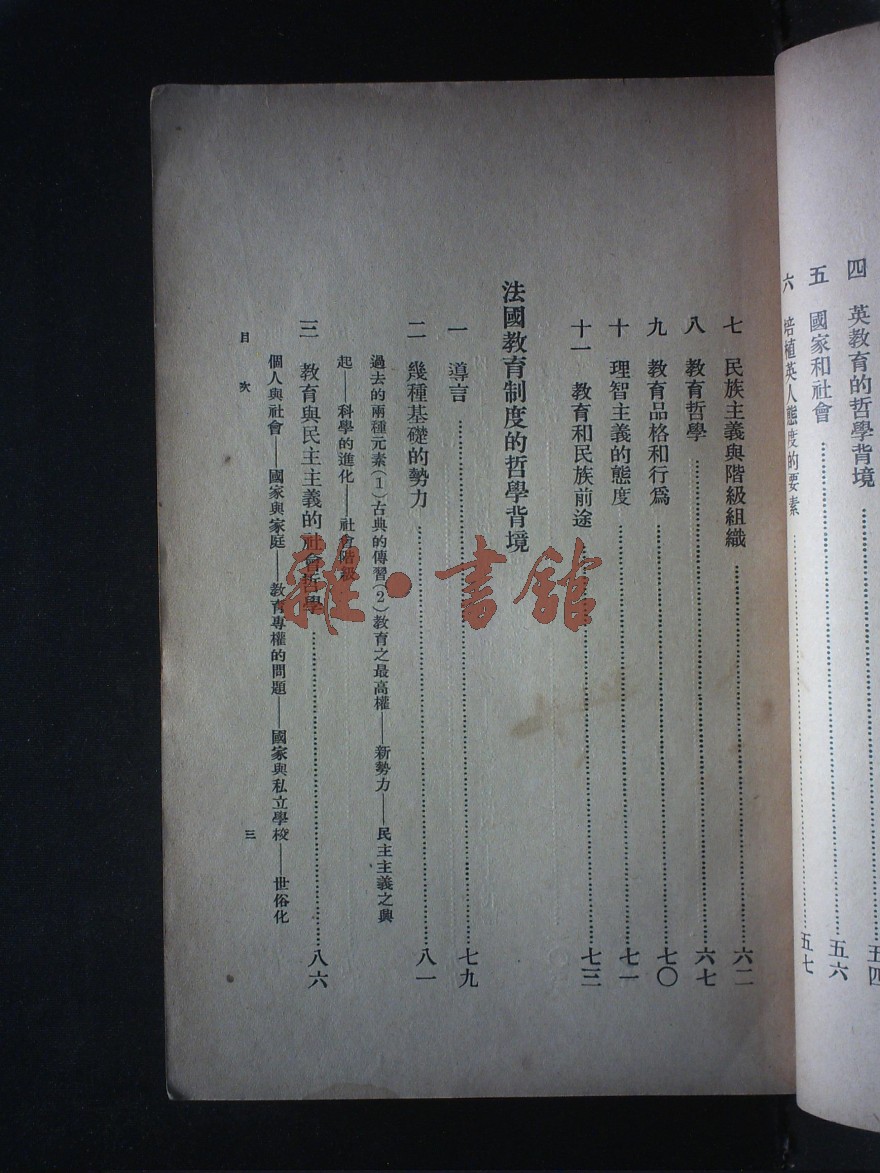 四 英教育的哲學背境……五四
五 國家和社會……五六
六 培植英人態度的要素……五七
七 民族主義與階級組織……六二
八 教育哲學……六七
九 教育品格和行爲……七〇
十 理智主義的態度……七一
十一 教育和民族前途……七三
法國教育制度的哲學背境
一 導言……七九
二 幾種基礎的勢力……八一
過去的兩種元素(1)古典的傳習(2)教育之最高權——新勢力——民主主義之興
起——科學的進化——社會階級
三 教育與民主主義的社會哲學……八六
個人與社會——國家與家庭——教育專權的問題——國家與私立學校——世俗化
目次 三
雜·書館